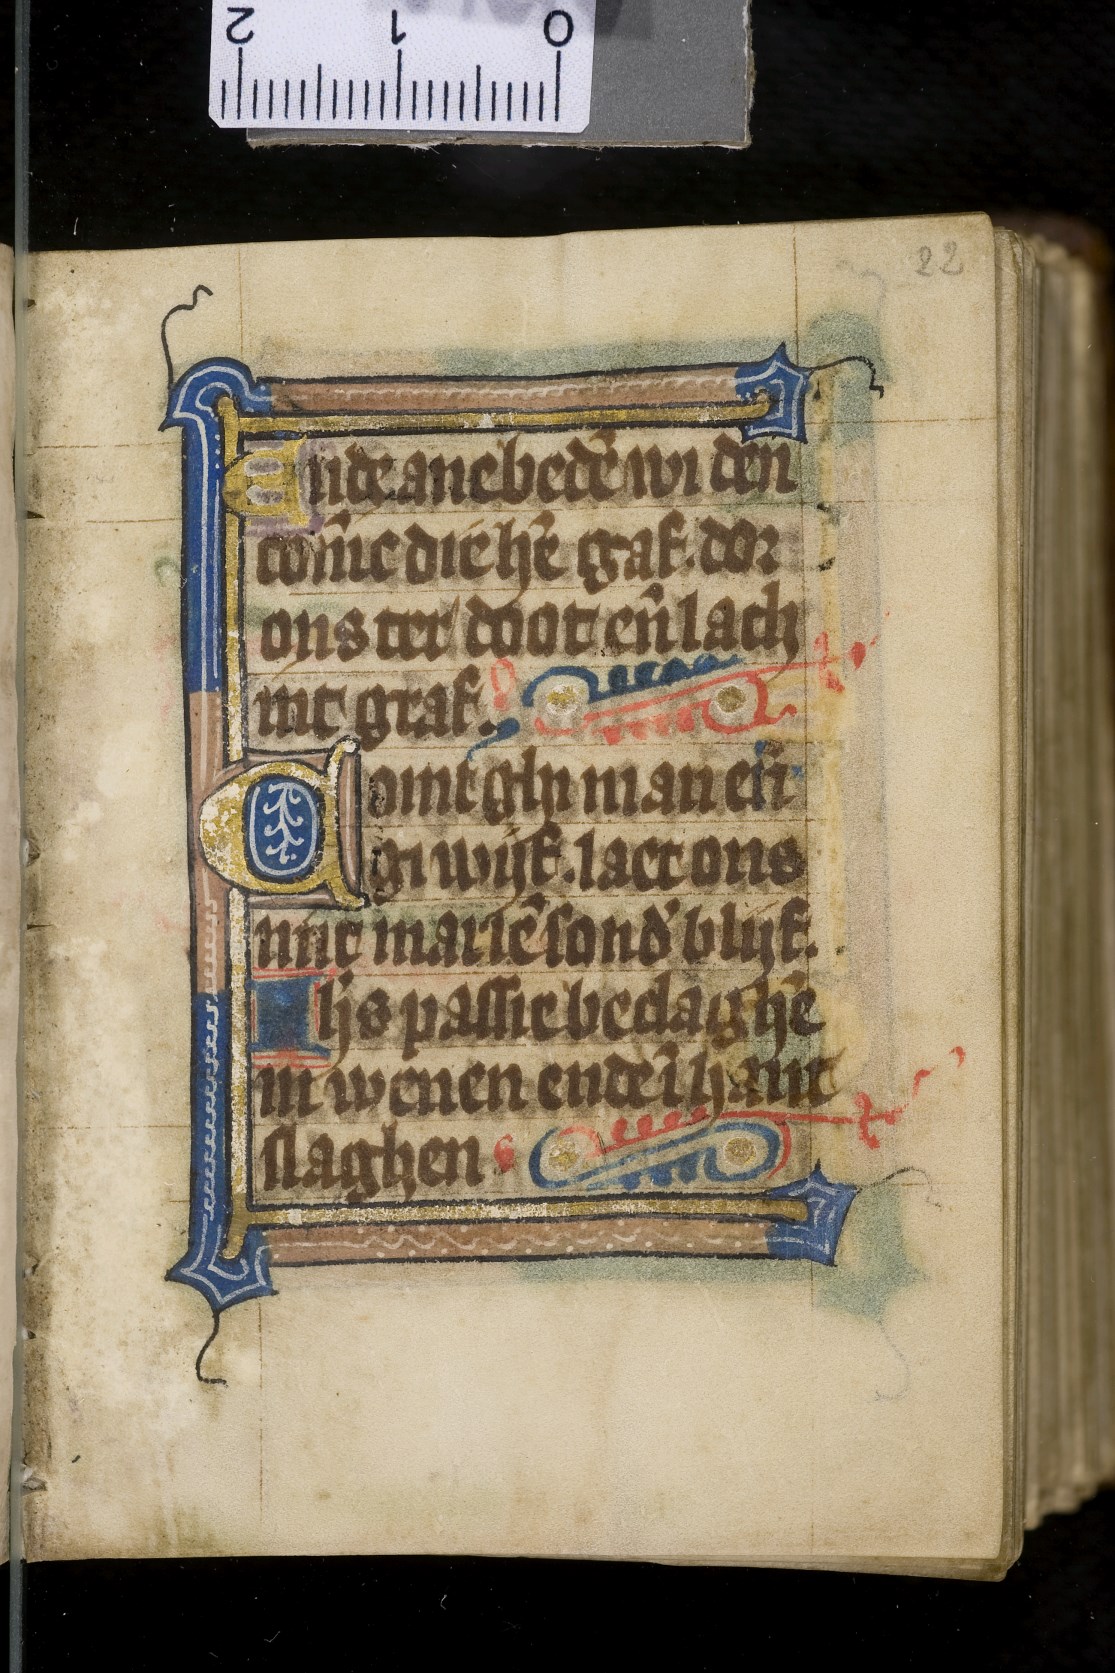 2 1 0
22
Ende anebedē wi den
comīc die hē gaf. dor
ons ter doot en̄ lach
int graf.
Comt ghi man en̄
gi wijf. laet ons
mit mariē sond' blijf.
Ihs passie beclaghē
in wenen ende ī hant
slaghen